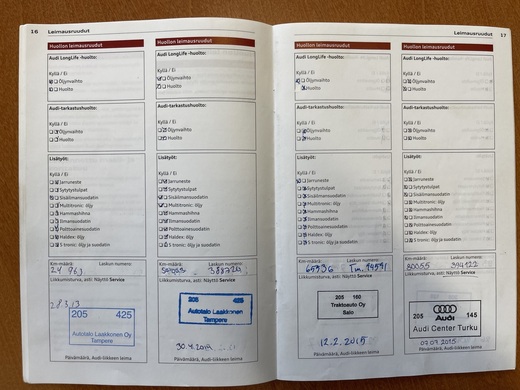 16 Laimausruudut
Huollon leimausruudut
Audi LongLife -huolto:
Kyllä / Ei
Öljynvaihto
Huolto
Audi-tarkastushuolto:
Kyllä / Ei
Öljynvaihto
Huolto
Lisätyöt:
Kyllä / Ei
Jarruneste
Sytytystulpat
Sisäilmansuodatin
Multitronic: öljy
Hammashihna
Ilmansuodatin
Polttoainesuodatin
Haldex: öljy
S tronic: öljy ja suodatin
Km-määrä: Laskun numero:
24 963
Liikkumisturva, asti: Näyttö Service
28.3.13
205 425
Autotalo Laakkonen Oy
Tampere
Päivämäärä, Audi-liikkeen leima
Huollon leimausruudut
Audi LongLife -huolto:
Kyllä / Ei
Öljynvaihto
Huolto
Audi-tarkastushuolto:
Kyllä / Ei
Öljynvaihto
Huolto
Lisätyöt:
Kyllä / Ei
Jarruneste
Sytytystulpat
Sisäilmansuodatin
Multitronic: öljy
Hammashihna
Ilmansuodatin
Polttoainesuodatin
Haldex: öljy
S tronic: öljy ja suodatin
Km-määrä: Laskun numero:
388720
Liikkumisturva, asti: Näyttö Service
205 425
Autotalo Laakkonen Oy
Tampere
30.4.2014
Päivämäärä, Audi-liikkeen leima
Leimausruudut 17
Huollon leimausruudut
Audi LongLife -huolto:
Kyllä / Ei
Öljynvaihto
Huolto
Audi-tarkastushuolto:
Kyllä / Ei
Öljynvaihto
Huolto
Lisätyöt:
Kyllä / Ei
Jarruneste
Sytytystulpat
Sisäilmansuodatin
Multitronic: öljy
Hammashihna
Ilmansuodatin
Polttoainesuodatin
Haldex: öljy
S tronic: öljy ja suodatin
Km-määrä: Laskun numero:
65936
Liikkumisturva, asti: Näyttö Service
205 160
Traktoauto Oy
Salo
12.2.2015
Päivämäärä, Audi-liikkeen leima
Huollon leimausruudut
Audi LongLife -huolto:
Kyllä / Ei
Öljynvaihto
Huolto
Audi-tarkastushuolto:
Kyllä / Ei
Öljynvaihto
Huolto
Lisätyöt:
Kyllä / Ei
Jarruneste
Sytytystulpat
Sisäilmansuodatin
Multitronic: öljy
Hammashihna
Ilmansuodatin
Polttoainesuodatin
Haldex: öljy
S tronic: öljy ja suodatin
Km-määrä: Laskun numero:
80055 394122
Liikkumisturva, asti: Näyttö Service
205 Audi 145
Audi Center Turku
07.09.2015
Päivämäärä, Audi-liikkeen leima